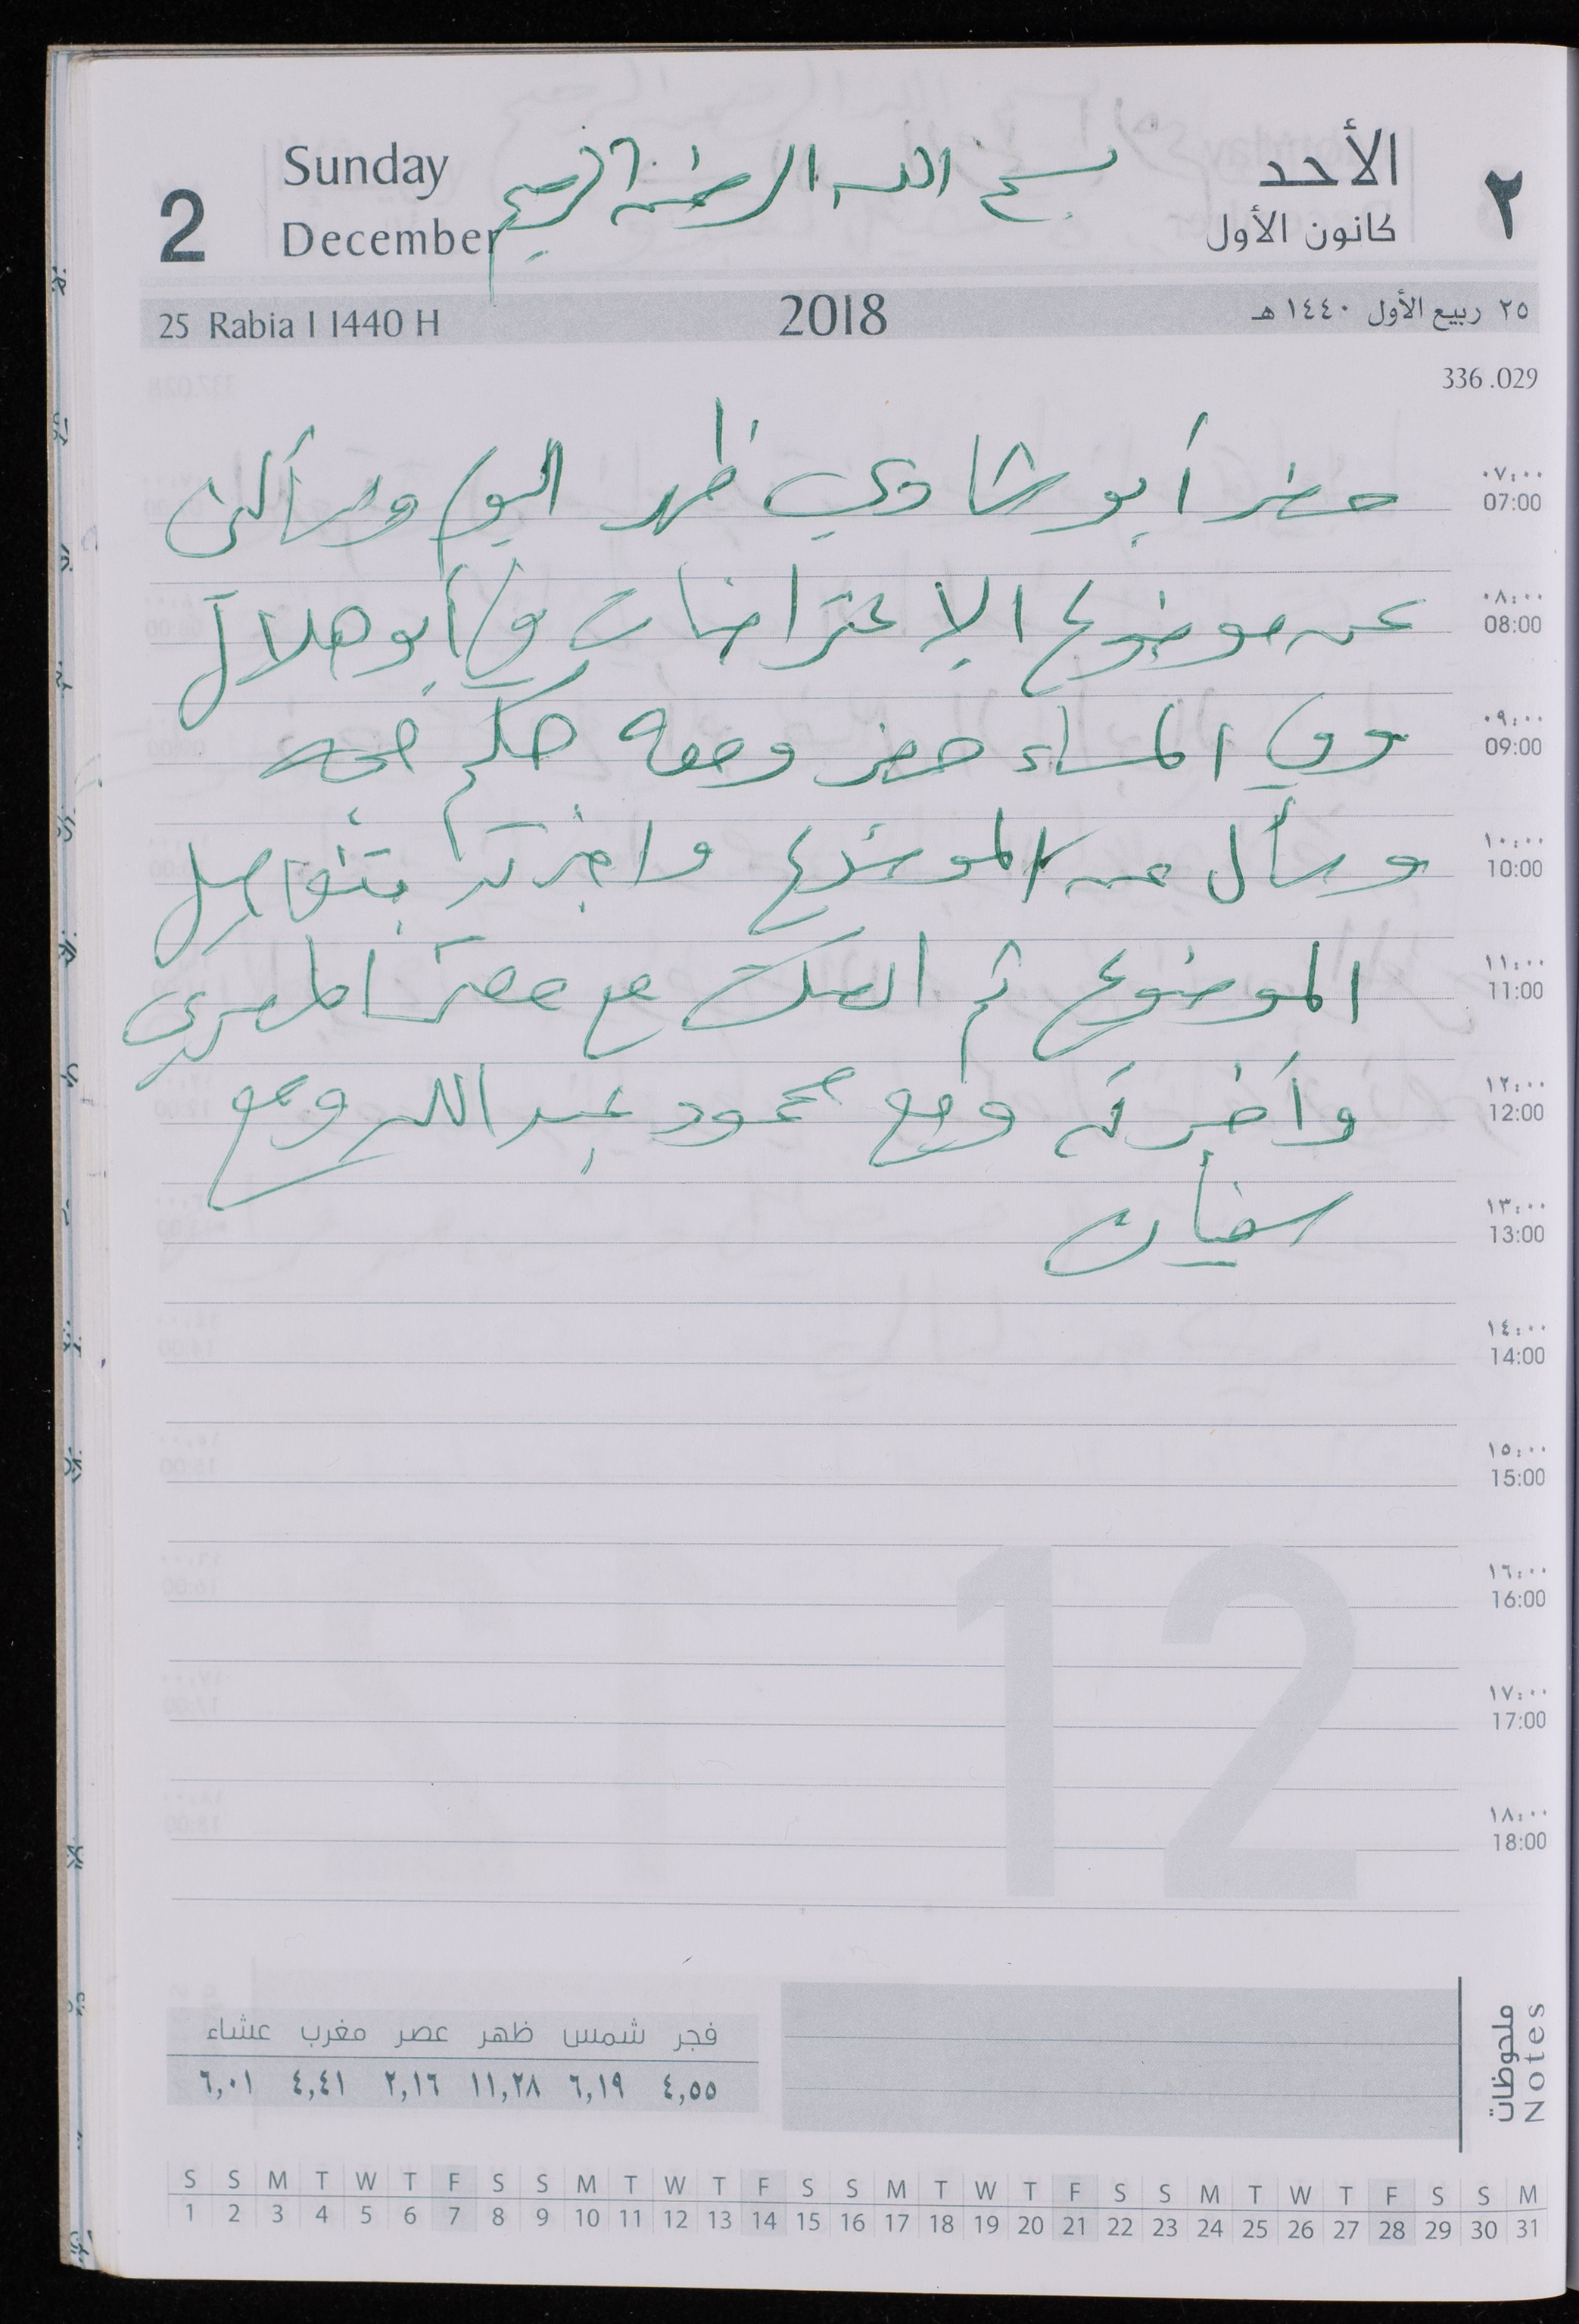 2
Sunday
December
بسم الله الرحمن الرحيم
الأحد
كانون الأول
٢
25 Rabia I 1440 H
2018
٢٥ ربيع الأول ١٤٤٠ هـ
336.029
حضر أبو شادي ظهر اليوم وسألني
عن موضوع الإعتراضات وأبو هلال
وفي المساء حضر ومعه حكم
وسأل عن الموضوع واخبرته بتفاصيل
الموضوع ثم اتصلت مع المصري
وأخبرته ومع محمود عبد الله ومع
سفيان
٠٧:٠٠
07:00
٠٨:٠٠
08:00
٠٩:٠٠
09:00
١٠:٠٠
10:00
١١:٠٠
11:00
١٢:٠٠
12:00
١٣:٠٠
13:00
١٤:٠٠
14:00
١٥:٠٠
15:00
١٦:٠٠
16:00
١٧:٠٠
17:00
١٨:٠٠
18:00
12
فجر شمس ظهر عصر مغرب عشاء
٤,٥٥ ٦,١٩ ١١,٢٨ ٢,١٦ ٤,٤١ ٦,٠١
ملحوظات
Notes
S S M T W T F S S M T W T F S S M T W T F S S M T W T F S S M
1 2 3 4 5 6 7 8 9 10 11 12 13 14 15 16 17 18 19 20 21 22 23 24 25 26 27 28 29 30 31